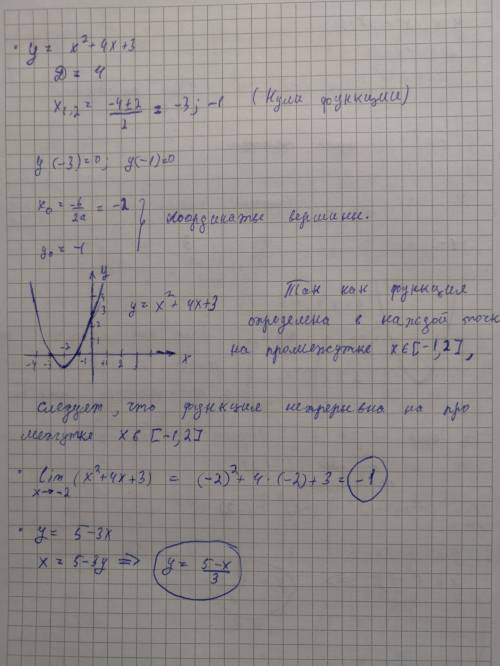 • y = x² + 4x + 3
D = 4
x₁,₂ = (-4±2)/2 = -3; -1 (Нули функции)
y(-3)=0; y(-1)=0
x₀ = -b/2a = -2
y₀ = -1
координаты вершины.
y
y = x² + 4x + 3
-4 -3 -2 -1 1 2 3 x
Так как функция
определена в каждой точк
на промежутке x∈[-1,2],
следует, что функция непрерывна на про
межутке x∈[-1,2]
• lim (x²+4x+3) = (-2)² + 4·(-2)+3 = -1
x→-2
• y = 5-3x
x = 5-3y => y = (5-x)/3